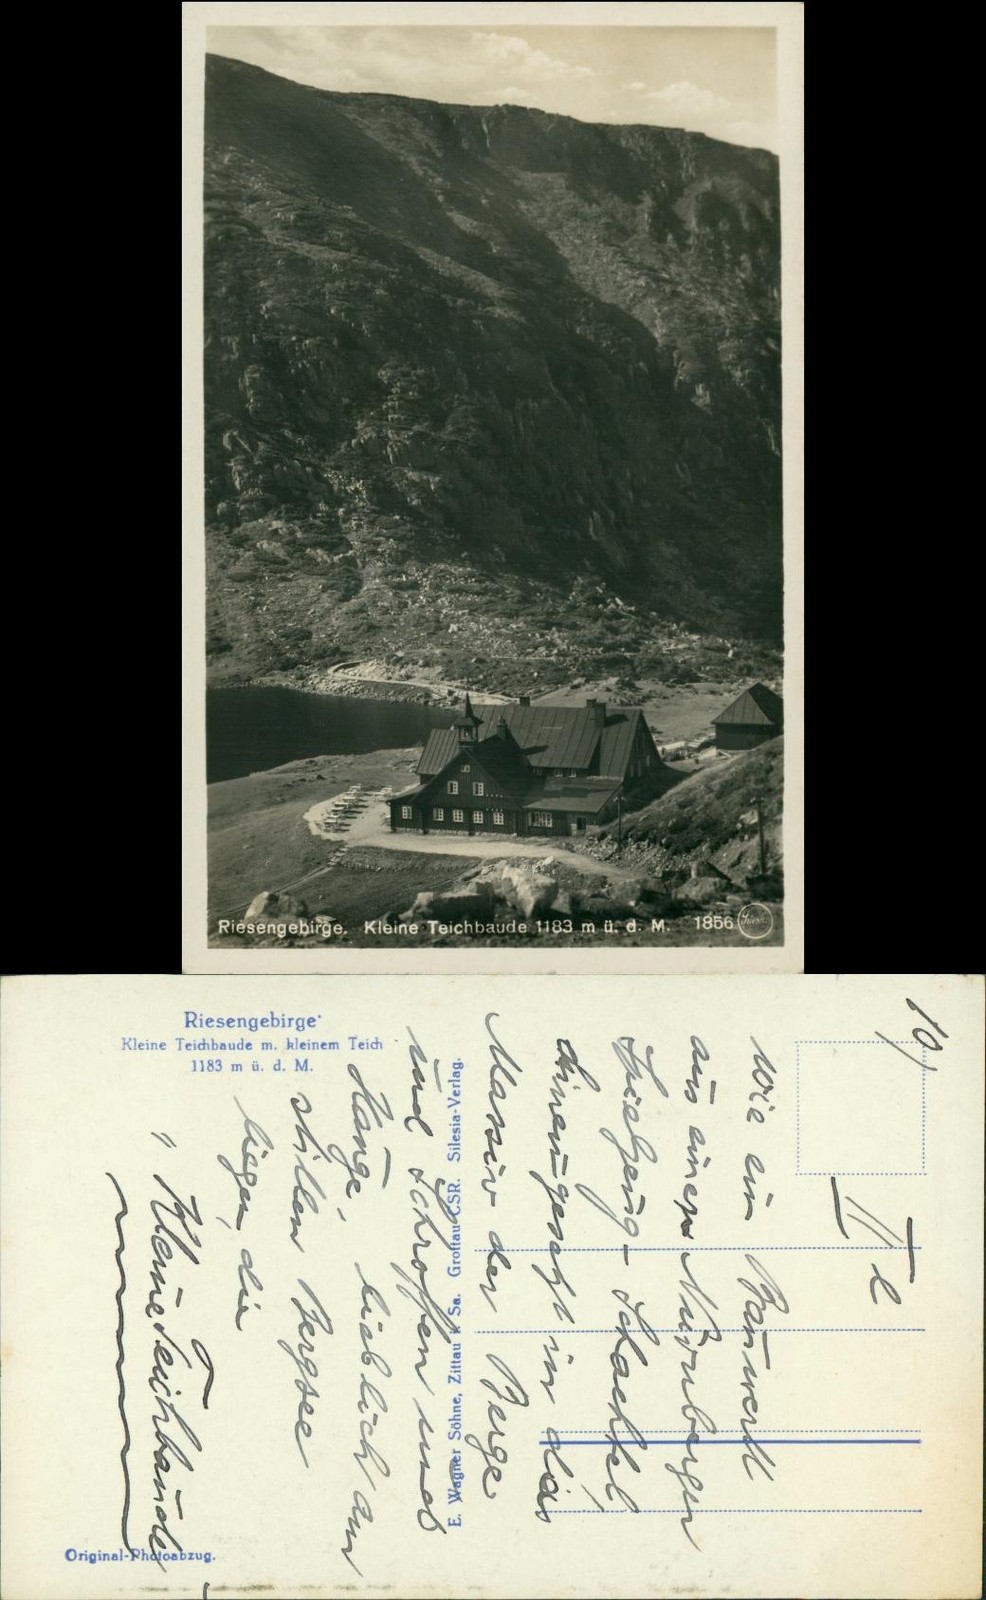 Riesengebirge. Kleine Teichbaude 1183 m ü. d. M. 1856
Riesengebirge
Kleine Teichbaude m. kleinem Teich
1183 m ü. d. M.
E. Wagner Söhne, Zittau i. Sa. Grottau ČSR. Silesia-Verlag.
Original-Photoabzug.
10)
II
wie ein Bauwerk
aus einer Nürnberger
Spielzeug-Schachtel,
hineingesetzt in das
Massiv der Berge
und Schroffen und
Hänge, lieblich am
stillen Bergsee
liegen, die
"Kleine Teichbaude